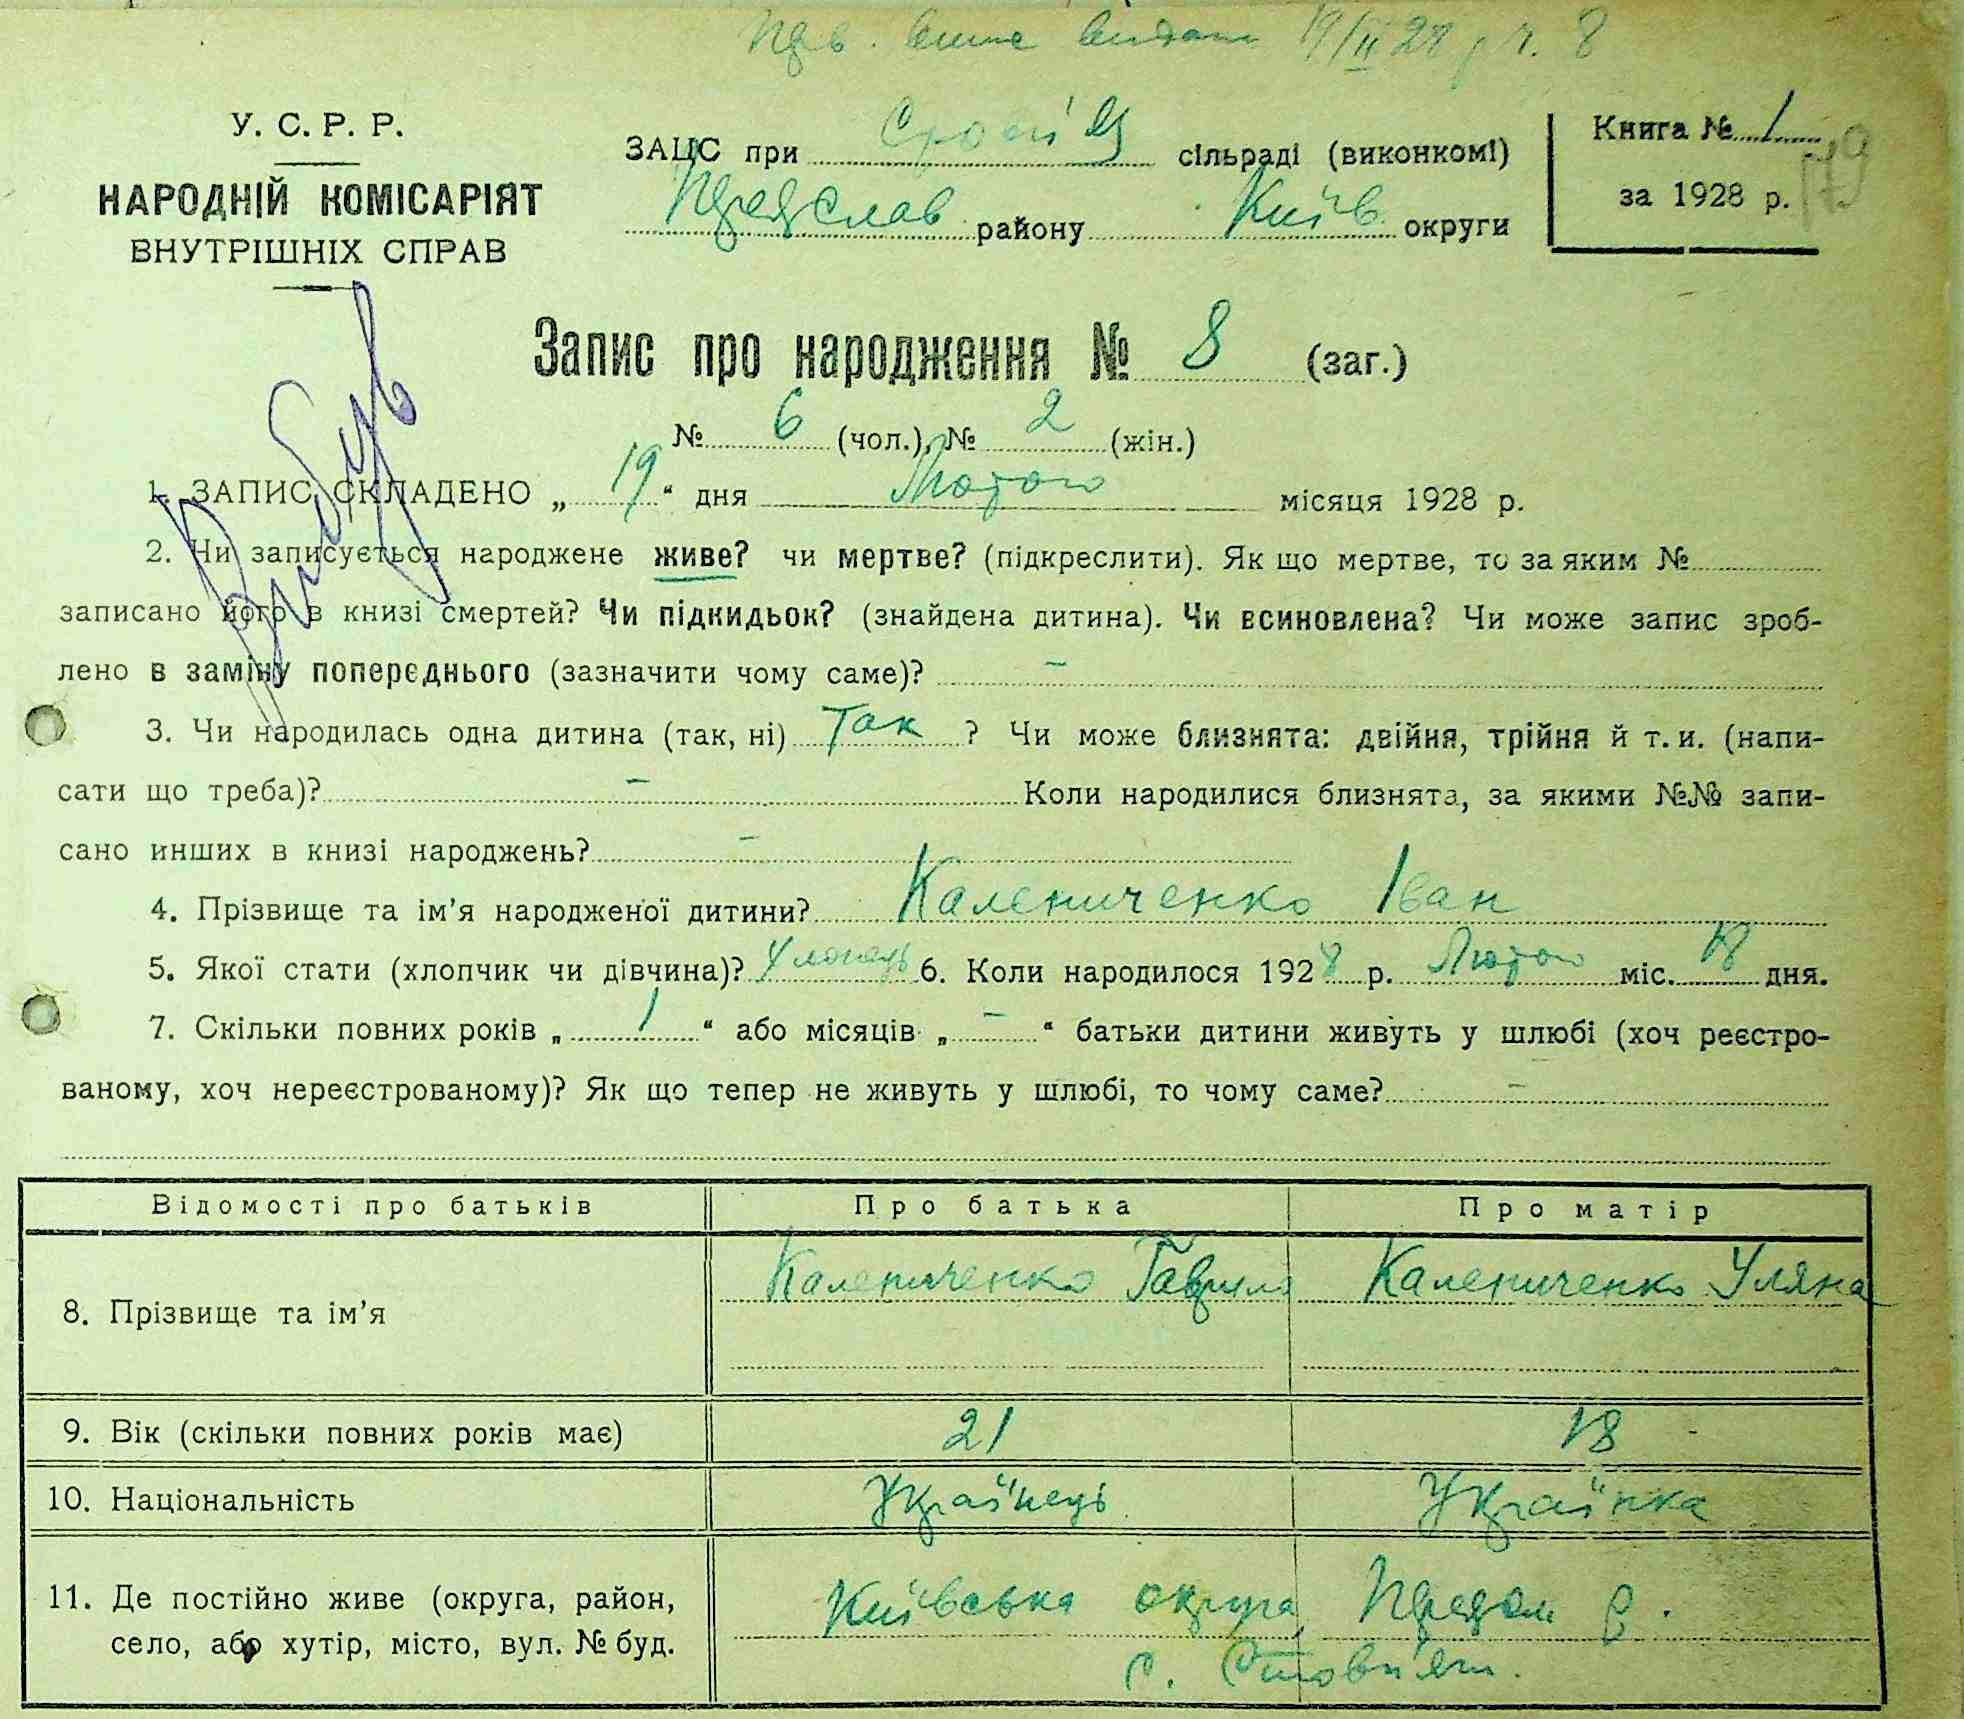 виписи видано 19/II 28 р ч. 8
У. С. Р. Р.
НАРОДНІЙ КОМІСАРІЯТ
ВНУТРІШНІХ СПРАВ
ЗАЦС при сільраді (виконкомі)
району Київ округи
Книга № 1
за 1928 р.
179
Запис про народження № 8 (заг.)
№ 6 (чол.), № 2 (жін.)
1. ЗАПИС СКЛАДЕНО „ 19 “ дня Лютого місяця 1928 р.
2. Чи записується народжене живе? чи мертве? (підкреслити). Як що мертве, то за яким №
записано його в книзі смертей? Чи підкидьок? (знайдена дитина). Чи всиновлена? Чи може запис зроб-
лено в заміну попереднього (зазначити чому саме)? –
3. Чи народилась одна дитина (так, ні) Так ? Чи може близнята: двійня, трійня й т. и. (напи-
сати що треба)? – Коли народилися близнята, за якими №№ запи-
сано инших в книзі народжень? –
4. Прізвище та ім’я народженої дитини? Калениченко Іван
5. Якої стати (хлопчик чи дівчина)? Хлопець 6. Коли народилося 1928 р. Лютого міс. 18 дня.
7. Скільки повних років „ 1 “ або місяців „ – “ батьки дитини живуть у шлюбі (хоч реєстро-
ваному, хоч нереєстрованому)? Як що тепер не живуть у шлюбі, то чому саме? –
Відомості про батьків Про батька Про матір
8. Прізвище та ім’я Калениченко Гаврило Калениченко Уляна
9. Вік (скільки повних років має) 21 18
10. Національність Українець Українка
11. Де постійно живе (округа, район,
село, або хутір, місто, вул. № буд.
Київська округа р.
с. Стовп'яги.